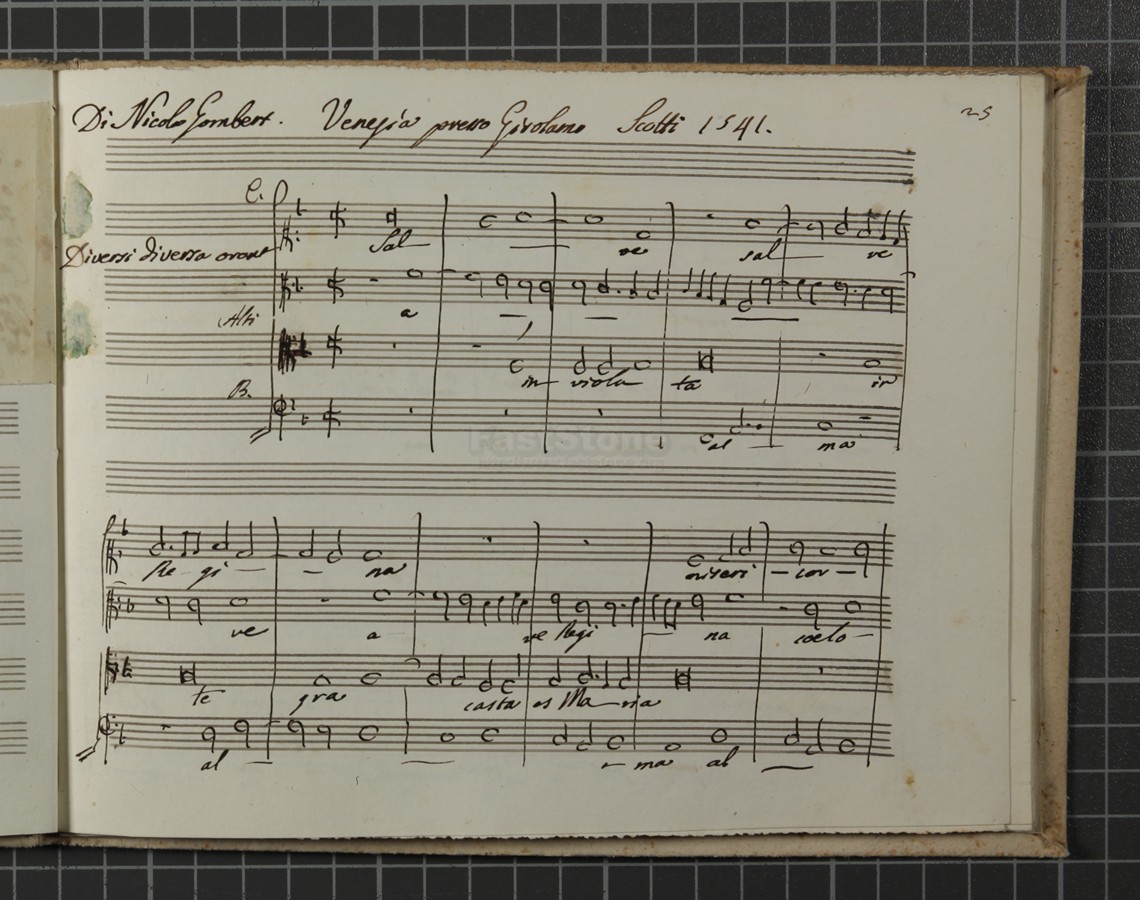 Di Nicolo Gombert. Venezia presso Girolamo Scotti 1541.
25
C.
Sal ve sal ve
Diversi diversa orant
a
Alti
in viola ta in
B.
al ma
FastStone
Re gi na miseri cor
ve a ve Regi na coelo
te gra casta es Maria
al ma al